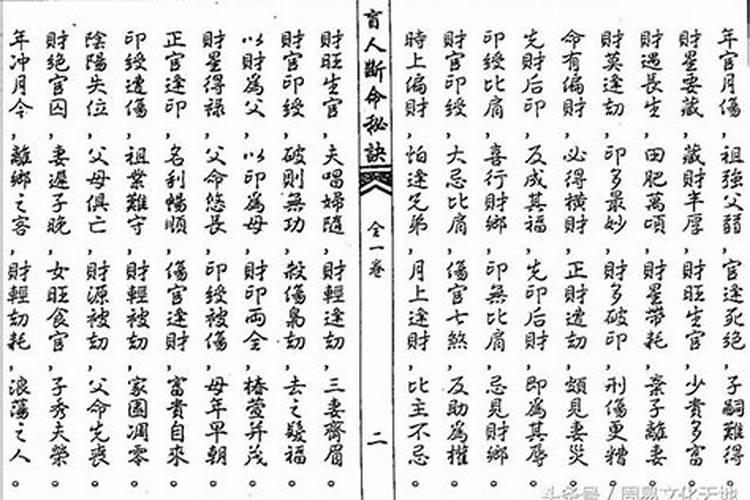 年官月傷，祖強父弱，官逢死絕，子嗣難得。
財星要藏，藏財丰厚，財旺生官，少貴多富。
財遇長生，田肥萬頃，財星帶耗，棄子離妻。
財莫逢劫，印多最妙，財多破印，刑傷更糟。
命有偏財，必得橫財，正財遭劫，見妻災。
先財后印，反成其福，先印后財，即為其辱。
印綬比肩，喜行財鄉，印無比肩，忌見財鄉。
財官印綬，大忌比肩，傷官七煞，反助為權。
時上偏財，怕逢兄弟，月上逢財，比主不忌。
盲人斷命秘訣 全一卷 二
財旺生官，夫唱婦隨，財輕逢劫，三妻齊眉。
財官印綬，破則無功，殺傷梟劫，去之發福。
以財為父，以印為母，財印兩全，椿萱并茂。
財星得祿，父命悠長，印綬被傷，母年早朝。
正官逢印，名利暢順，傷官逢財，富貴自來。
印綬遭傷，祖業難守，財輕被劫，家園凋零。
陰陽失位，父母俱亡，財源被劫，父命先喪。
財絕官囚，妻遲子晚，女旺食官，子秀夫榮。
年冲月令，離鄉之客，財輕劫耗，浪蕩之人。
头条号 / 周易文化天地